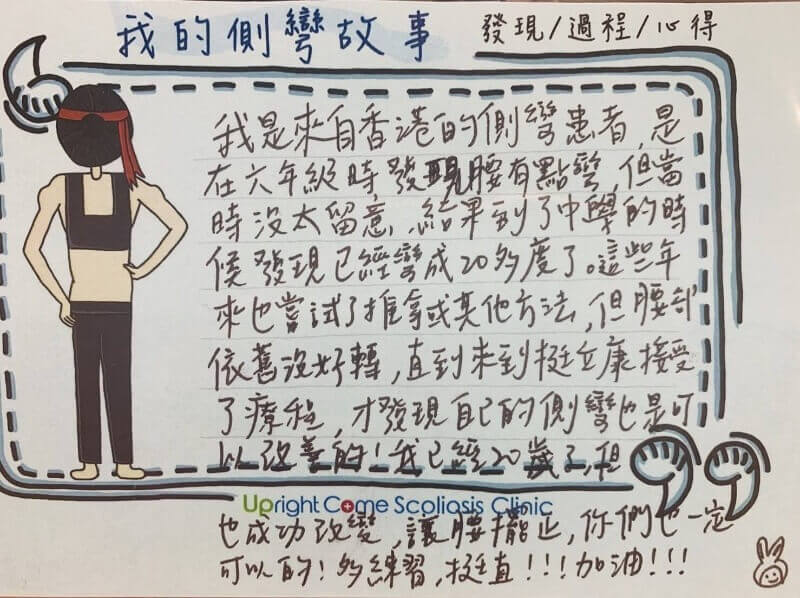 我的側彎故事
發現/過程/心得
我是來自香港的側彎患者,是
在六年級時,發現腰有點彎,但當
時沒太留意,結果到了中學的時
候發現已經彎成20多度了。這些年
來也嘗試了推拿或其他方法,但腰部
依舊沒好轉,直到來到挺立康接受
了療程,才發現自己的側彎也是可
以改善的!我已經20歲了,但
Upright Come Scoliosis Clinic
也成功改變,讓腰擺正,你們也一定
可以的!多練習,挺直!!!加油!!!